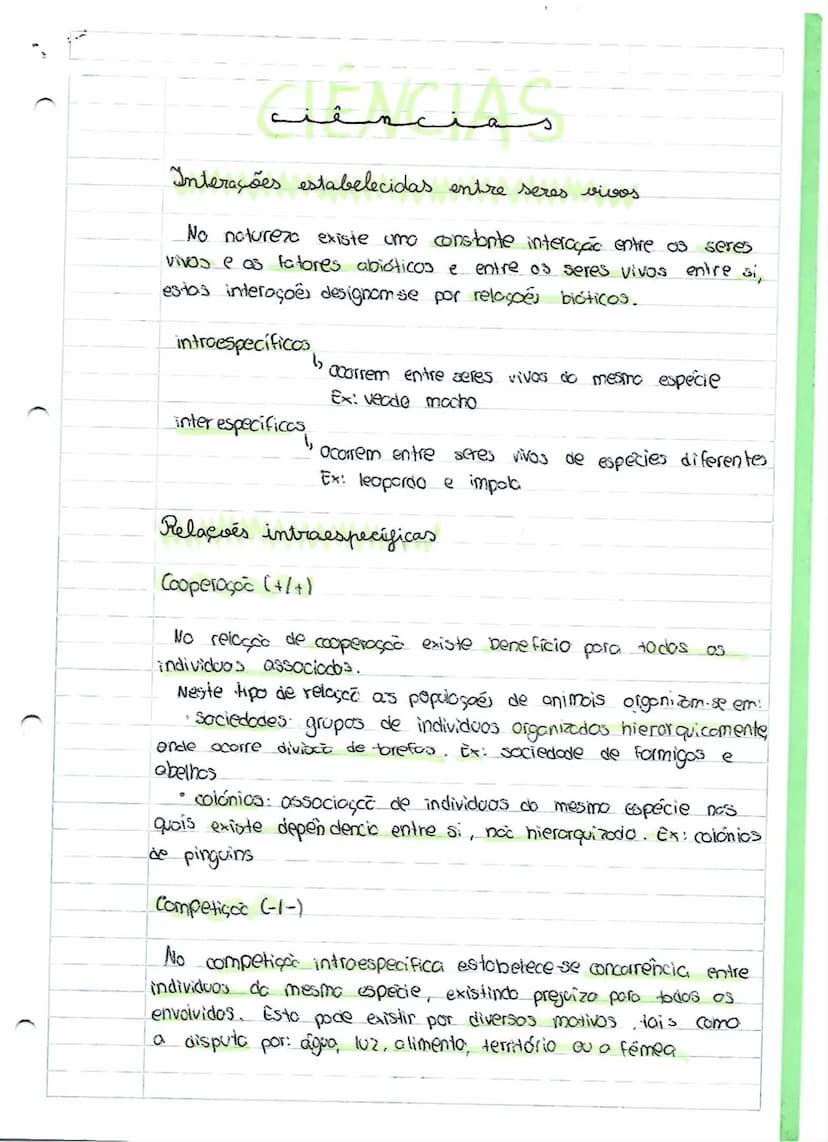 CIÊNCIAS
ciências
Interações estabelecidas entre seres vivos
Na natureza existe uma constante interação entre os seres
vivos e os fatores abióticos e entre os seres vivos entre si,
estas interações designam-se por relações bióticas.
intraespecíficas
↳ ocorrem entre seres vivos da mesma espécie
Ex: veado macho
inter específicas
↳ ocorrem entre seres vivos de espécies diferentes
Ex: leopardo e impala
Relações intraespecíficas
Cooperação (+/+)
Na relação de cooperação existe benefício para todos os
individuos associados.
Neste tipo de relação as populações de animais organizam-se em:
· sociedades: grupos de individuos organizados hierarquicamente,
onde ocorre divisão de tarefas. Ex: sociedade de formigas e
abelhas
• colónias: associação de individuos da mesma espécie nas
quais existe dependencia entre si, não hierarquizada. Ex: colónias
de pinguins
Competição (-/-)
Na competição intraespecífica estabelece-se concorrência entre
individuos da mesma espécie, existindo prejuizo para todos os
envolvidos. Esta pode existir por diversos motivos, tais como
a disputa por: água, luz, alimento, território ou a fêmea